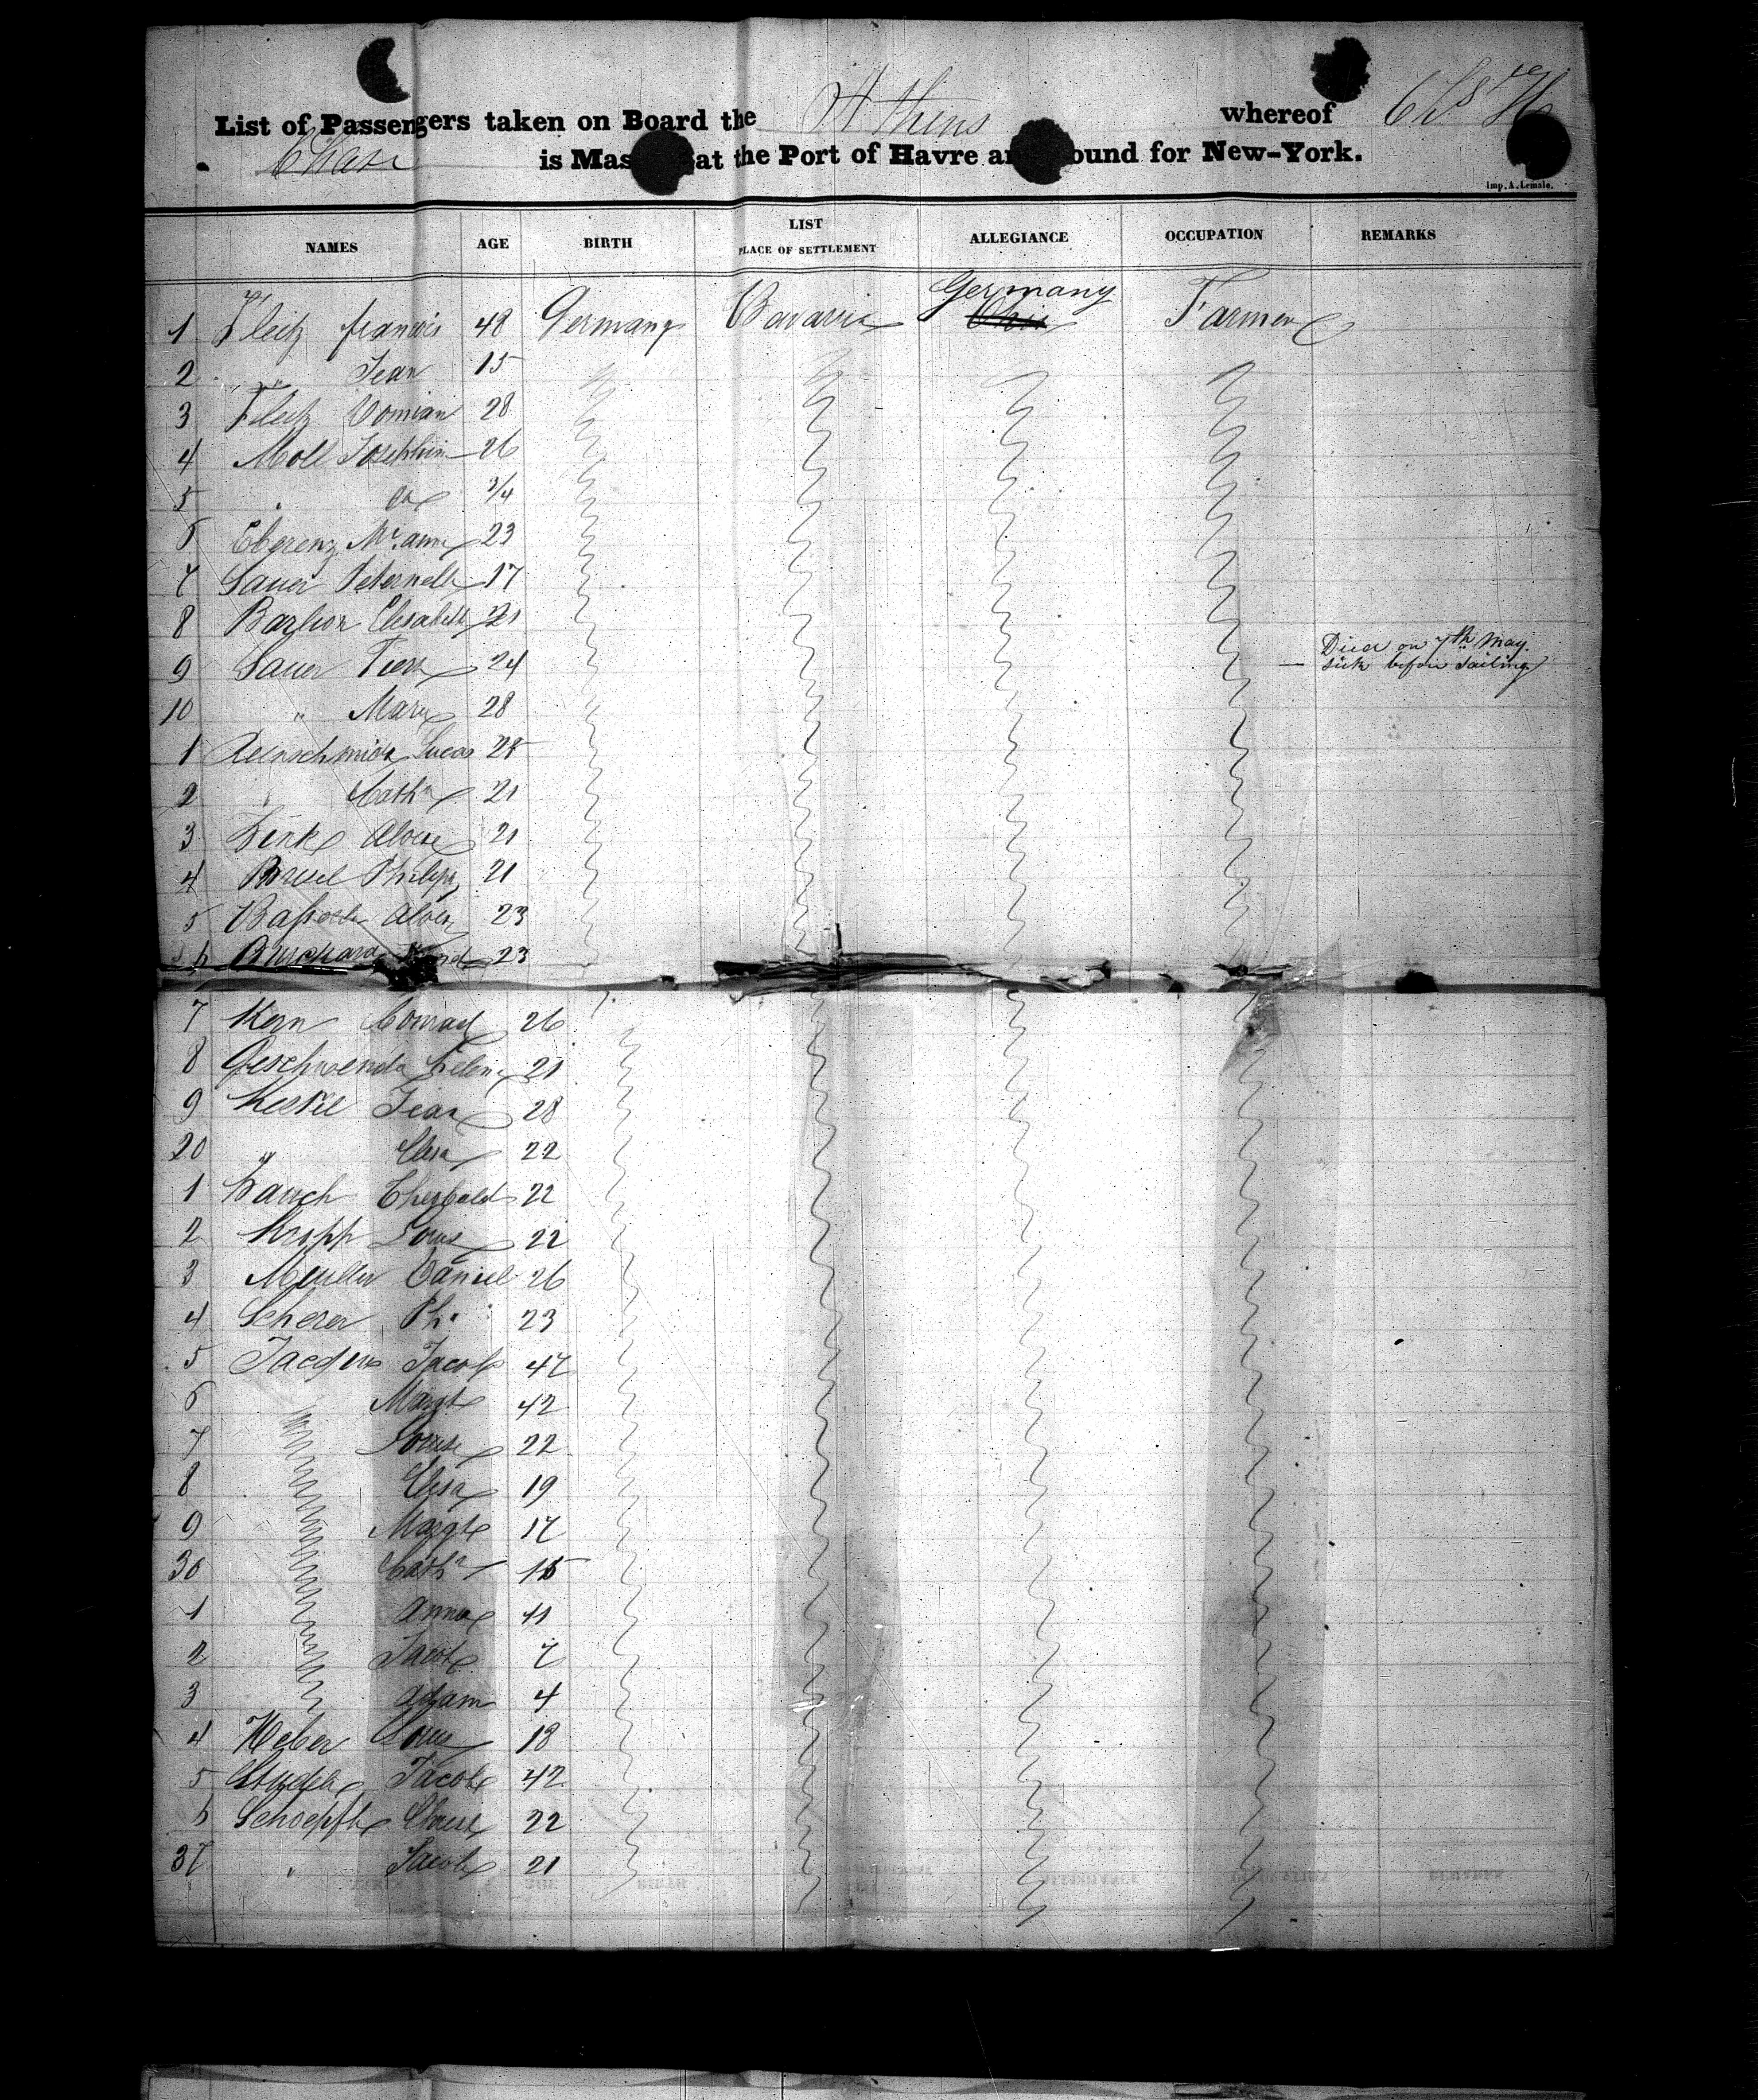 List of Passengers taken on Board the Athens whereof
Chase is Mas at the Port of Havre an ound for New-York.
Imp. A. Lemale.
NAMES AGE BIRTH LIST PLACE OF SETTLEMENT ALLEGIANCE OCCUPATION REMARKS
Germany
1 Fleitz francois 48 Germany Bavaria Ohio Farmer
2 " Jean 15
3 Fleitz Domian 28
4 Moll Josephine 26
5 " 3/4
6 Eberenz Mr. anne 23
7 Sauer Peternella 17
8 Barbon Elisabeth 21
Died on 7th May.
9 Sauer 24 sick before sailing
10 " Marie 28
1 Reinschmidt Lucas 28
2 " Cathn 21
3 Aloise 21
4 Philipp 21
5 Alois 23
6 Burchard 23
7 Kern Conrad 26
8 Geschwenda Helena 21
9 Keskel Jean 28
20 " Elisa 22
1 Bauch Theobald 22
2 Kropp Louis 22
3 Meuller Daniel 26
4 Scherer Ph. 23
5 Jacques Jacob 47
6 Margte 42
7 Louise 22
8 Elisa 19
9 Margte 17
30 Cathn 15
1 Anna 11
2 Jacob 7
3 Adam 4
4 Weber Louis 18
5 Jacob 42
6 Schoepfle 22
37 " Jacob 21